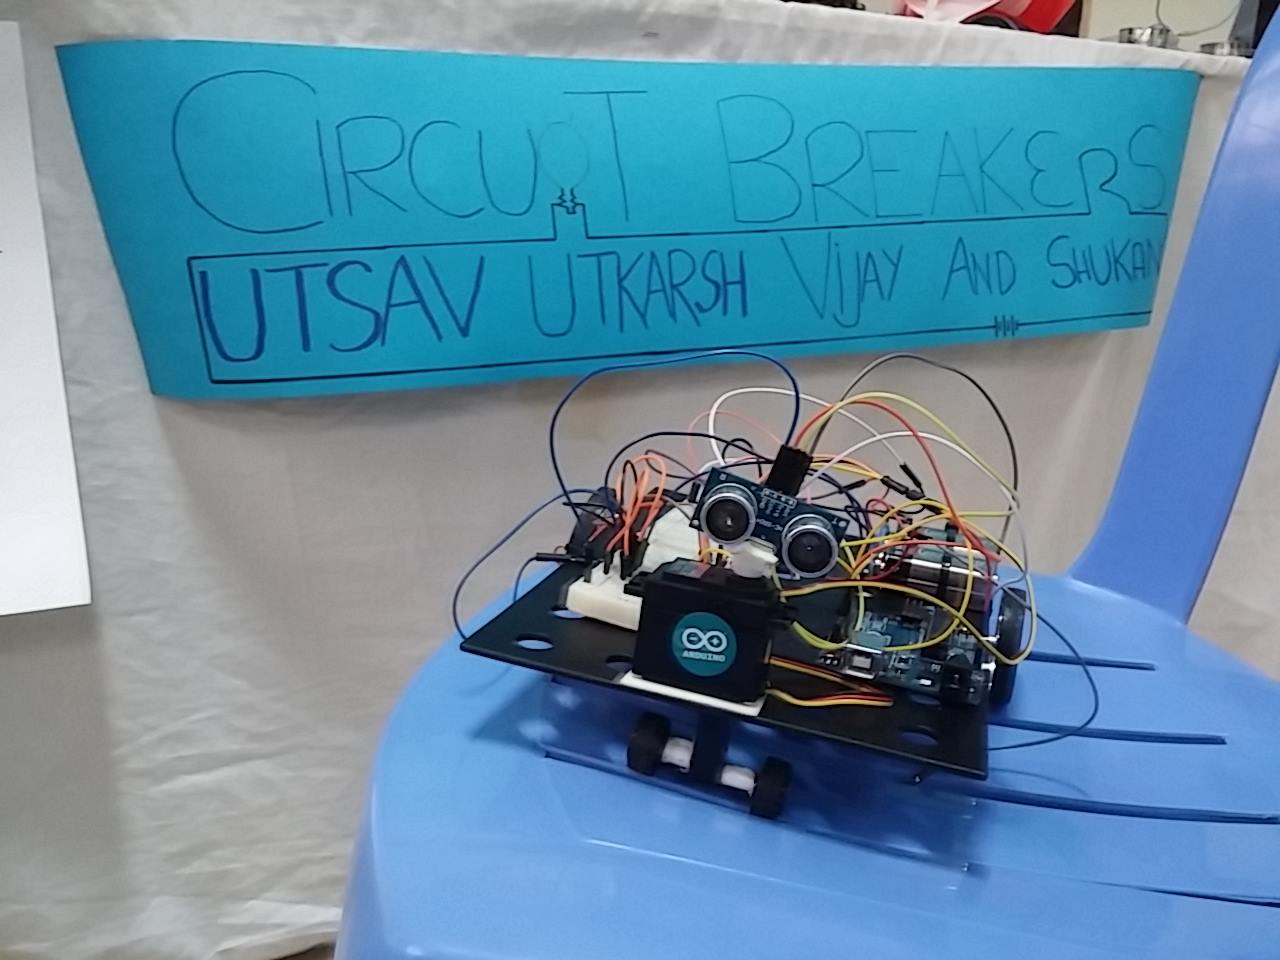 CIRCUIT BREAKERS
UTSAV UTKARSH VIJAY AND SHUKAN
ARDUINO